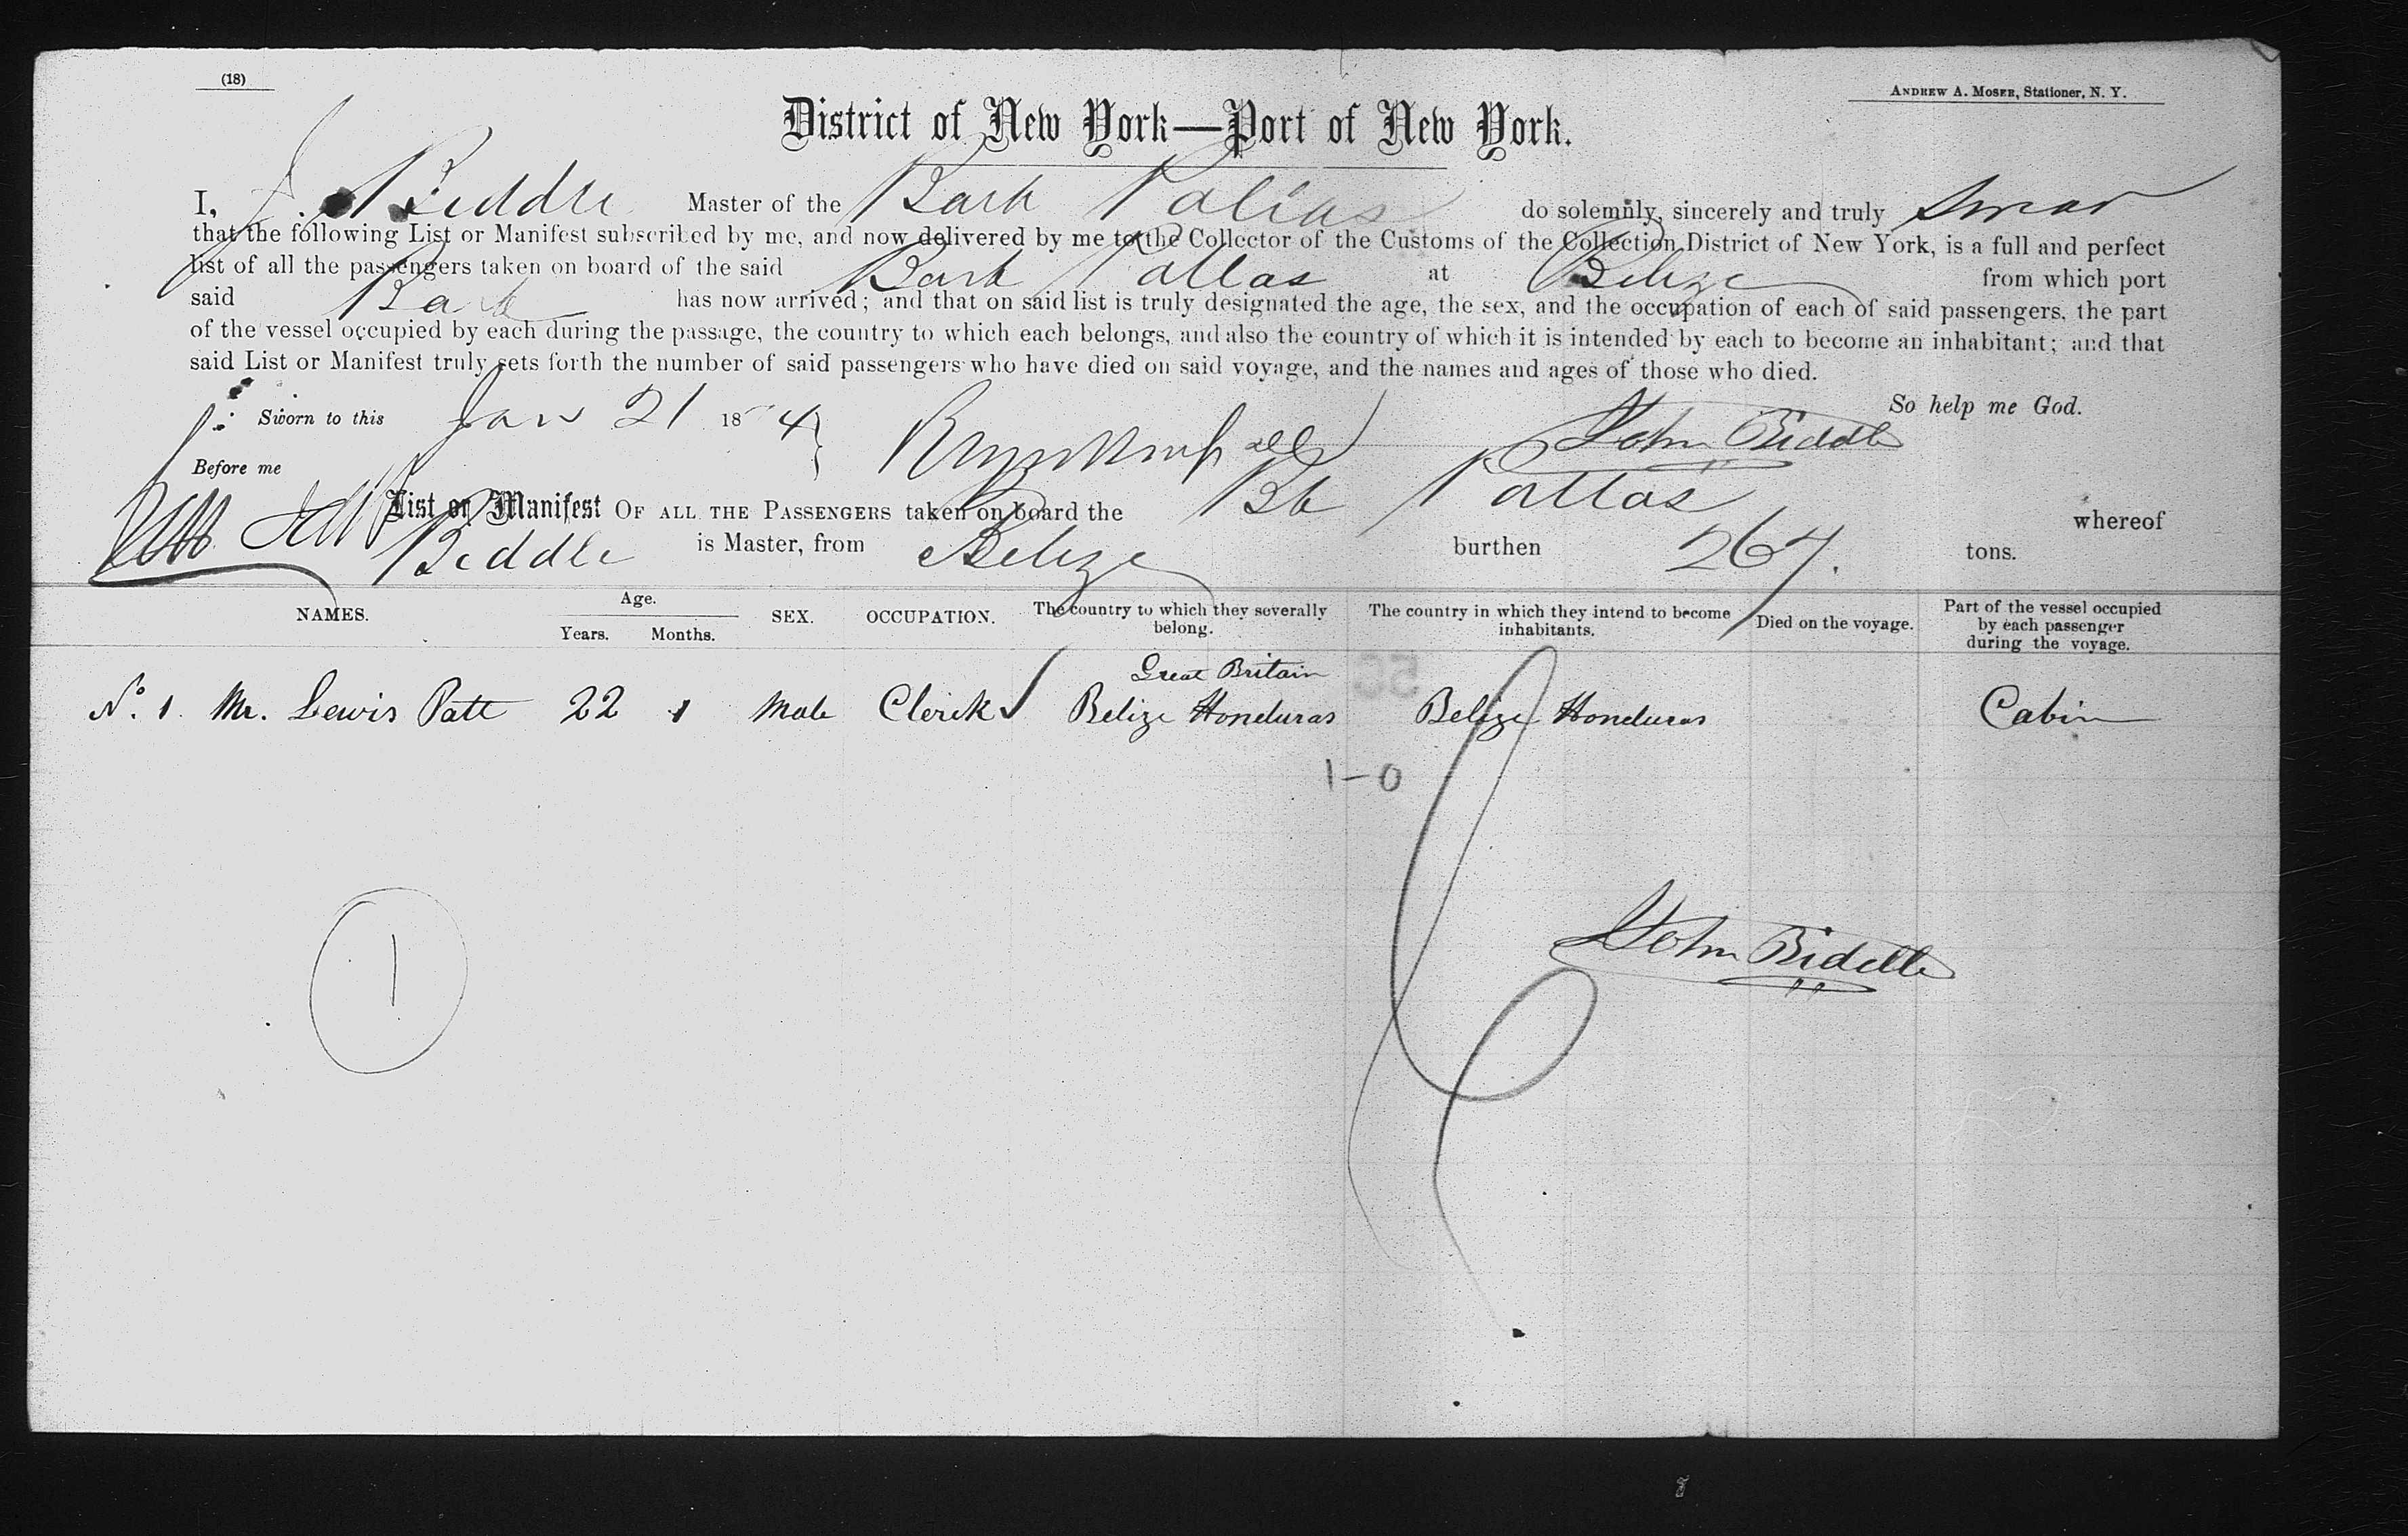 (18)
ANDREW A. MOSER, Stationer, N. Y.
District of New York—Port of New York.
I, J. Biddle Master of the Bark Pallas do solemnly, sincerely and truly swear
that the following List or Manifest subscribed by me, and now delivered by me to the Collector of the Customs of the Collection District of New York, is a full and perfect
list of all the passengers taken on board of the said Bark Pallas at Belize from which port
said Bark has now arrived; and that on said list is truly designated the age, the sex, and the occupation of each of said passengers, the part
of the vessel occupied by each during the passage, the country to which each belongs, and also the country of which it is intended by each to become an inhabitant; and that
said List or Manifest truly sets forth the number of said passengers who have died on said voyage, and the names and ages of those who died.
So help me God.
Sworn to this Jan 21 18 4 John Biddle
Before me
List or Manifest OF ALL THE PASSENGERS taken on board the Bk Pallas whereof
Biddle is Master, from Belize burthen 267. tons.
NAMES. Age. Years. Months. SEX. OCCUPATION. The country to which they severally belong. The country in which they intend to become inhabitants. Died on the voyage. Part of the vessel occupied by each passenger during the voyage.
Great Britain
No. 1. Mr. Lewis Patt 22 1 Male Clerk Belize Honduras Belize Honduras Cabin
1-0
John Biddle
1